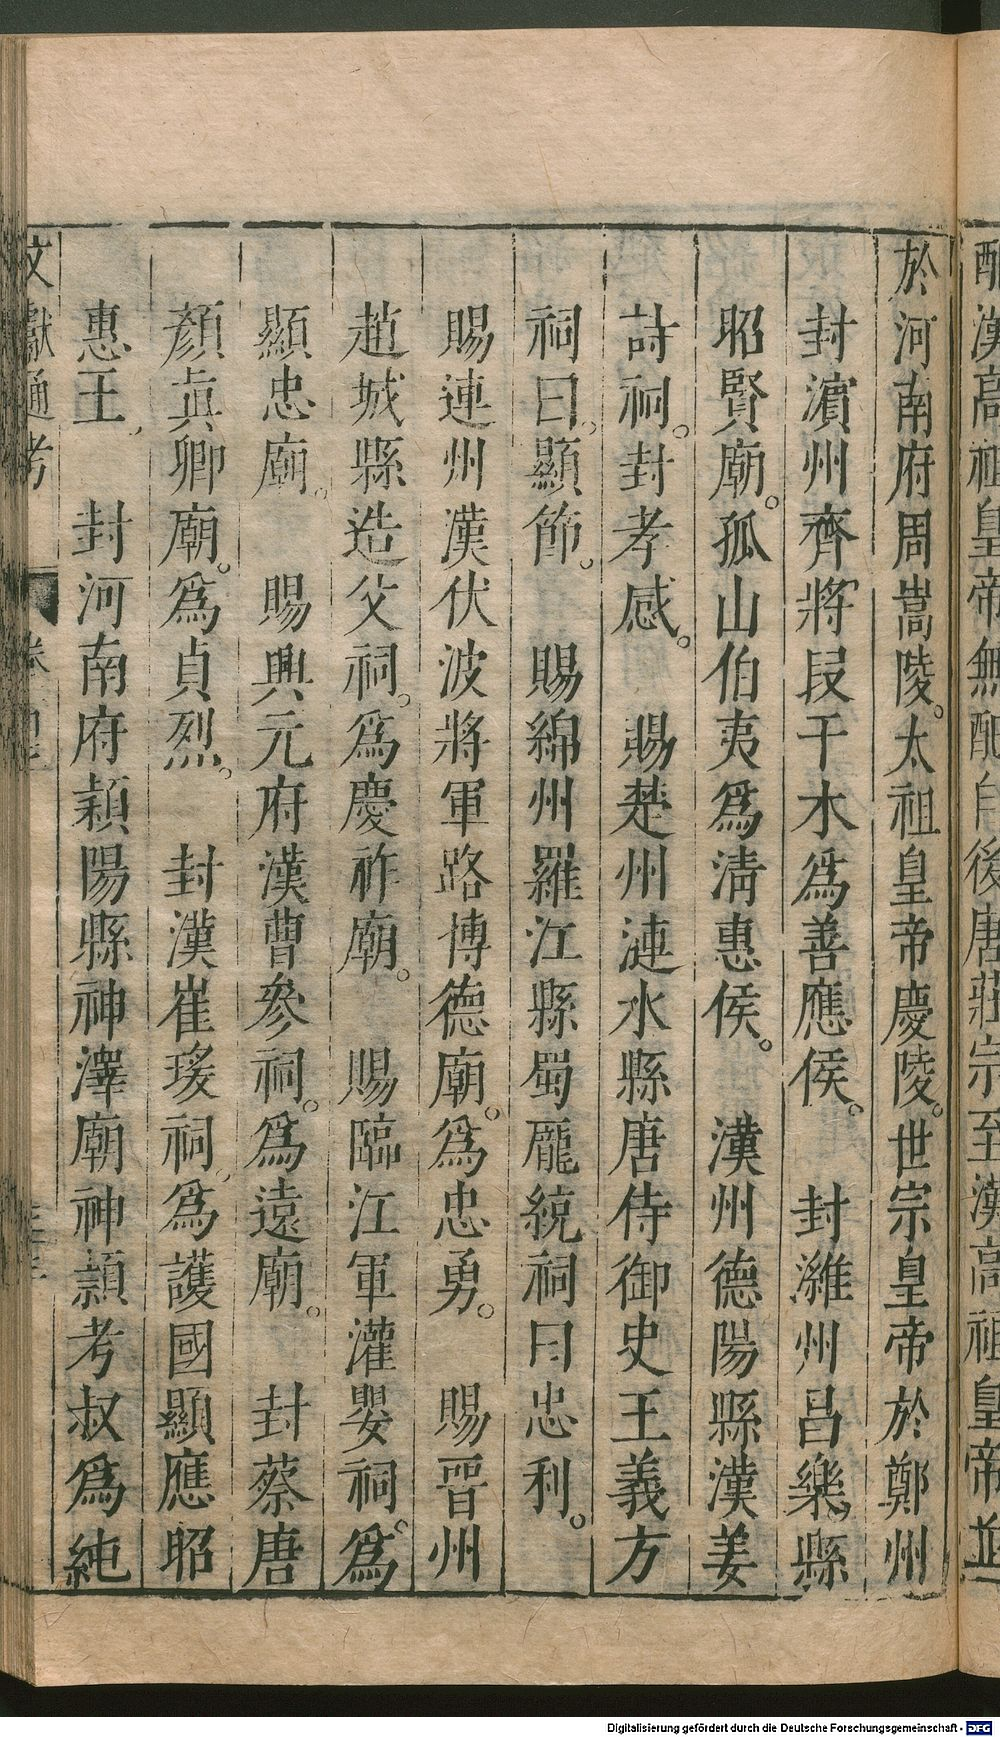 配漢高祖皇帝無配自後唐莊宗至漢高祖皇帝並
於河南府周嵩陵。太祖皇帝慶陵。世宗皇帝於鄭州
封濵州齊將叚干木爲善應侯。 封濰州昌樂縣
昭賢廟。孤山伯夷爲淸惠侯。 漢州德陽縣漢姜
詩祠。封孝感。 賜楚州漣水縣唐侍御史王義方
祠曰。顯節。 賜綿州羅江縣蜀龐統祠曰忠利。
賜連州漢伏波將軍路博德廟。爲忠勇。 賜晉州
趙城縣造父祠。爲慶祚廟。 賜臨江軍灌嬰祠。爲
顯忠廟。 賜興元府漢曹參祠。爲遠廟。 封蔡唐
顏眞卿廟。爲貞烈。 封漢崔瑗祠、爲護國顯應昭
惠王、 封河南府潁陽縣神澤廟神潁考叔爲純
文獻通考
Digitalisierung gefördert durch die Deutsche Forschungsgemeinschaft - DFG